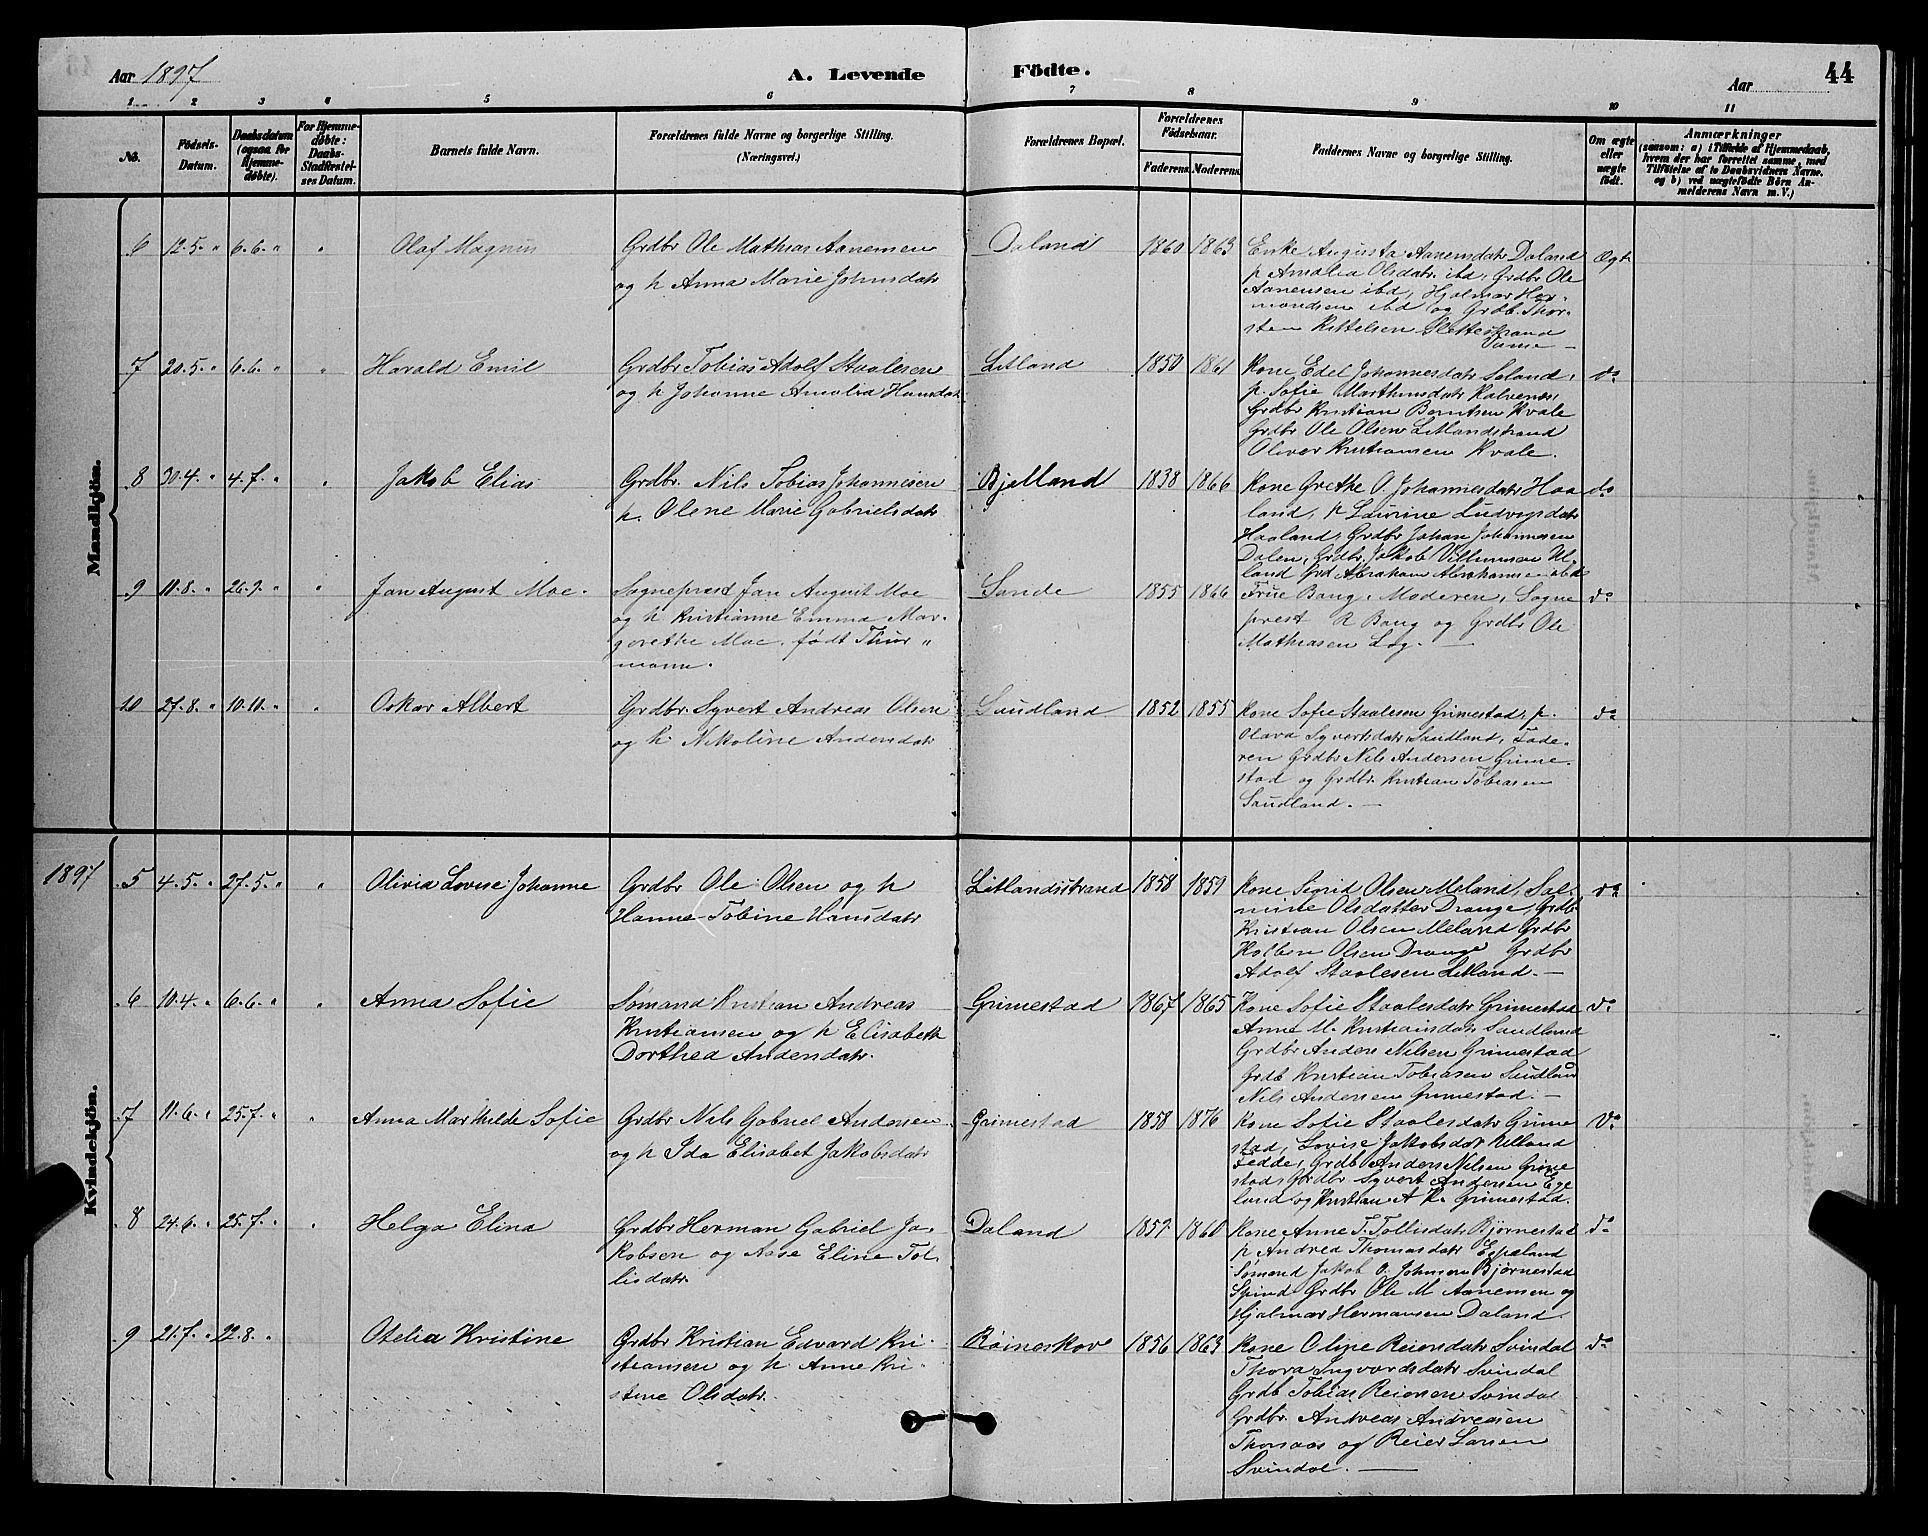 Aar 1897
A. Levende
Födte.
Aar
44
1 2 3 4 5 6 7 8 9 10 11
No.
Födsels-Datum.
Daabsdatum (ogsaa for Hjemme-döbte).
For Hjemme-döbte: Daabs-Stadfæstel-ses Datum.
Barnets fulde Navn.
Forældrenes fulde Navne og borgerlige Stilling.
(Næringsvei.)
Forældrenes Bopæl.
Forældrenes Födselsaar.
Faderens. Moderens.
Faddernes Navne og borgerlige Stilling.
Om ægte eller uægte födt.
Anmærkninger
(saasom: a) i Tilfælde af Hjemmedaab,
hvem der har forrettet samme, med
Tilföielse af to Daabsvidners Navne.
og b) ved uægtefödte Börn An-
melderens Navn m. V.)
Mandkjön.
6 12.5. " 6.6. " " Olaf Magnus
Grdbr Ole Mathias Aanensen
og h Anna Marie Johnsdatr
Daland 1860 1863
Enke Augusta Aanensdatr Daland
p Amalia Olsdatr ibd, Grdbr Ole
Aanensen ibd, Hjalmar Her-
mandsen ibd og Grdb. Thor-
sten Kittelsen Slettestrand
Vanse —
Ægt.
7 20.5. " 6.6. " " Harald Emil
Grdbr Tobias Adolf Staalesen
og h Johanne Amalia Hansdatr
Litland 1850 1861
Kone Edel Johannesdatr Seland,
p. Sofie Marthinsdatr Kalvenes,
Grdbr Kristian Berntsen Kvale
Grdbr Ole Olsen Litlandstrand
Oliver Kristiansen Kvale.
do
8 30.4. " 4.7. " " Jakob Elias
Grdbr. Nils Tobias Johannesen
h. Olene Marie Gabrielsdatr
Bjelland 1838 1866
Kone Grethe O. Johannesdatr Haa
land, p Laurine Ludvigsdatr
Haaland, Grdbr Johan Johannesen
Dalen, Grdbr. Jakob Villumsen
land Grd Abraham Abrahamsen ibd
do
9 11.8. " 26.9. " " Jan August Moe.
Sogneprest Jan August Moe
og h Kristianne Emma Mar-
grethe Moe, født Thur "
mann.
Sande 1855 1866
Frue Bang, Moderen, Sogne
prest Bang og Grdbr Ole
Mathiasen Log. —
do
10 27.8. " 10.10. " " Oskar Albert
Grdbr. Syvert Andreas Olsen
og h. Nikoline Andersdatr
Saudland 1852 1855
Kone Sofie Staalesen Grimestad, p.
Olava Syvertsdatr Saudland, Fade-
ren Grdbr Nils Andersen Grime-
stad og Grdbr. Kristian Tobiasen
Saudland. —
do
1897
Kvindekjön.
5 4.5. " 27.5. " " Olivia Lovise Johanne
Grdbr Ole Olsen og h
Hanne Tobine Hansdatr
Litlandsstrand 1858 1859
Kone Sigrid Olsen Meland, Sal-
mine Olsdatter Drange, Grdb.
Kristian Olsen Meland Grdbr
Kolben Olsen Drange Grdbr
Adolf Staalesen Litland. —
do
6 10.4. " 6.6. " " Anna Sofie
Sømand Kristian Andreas
Kristiansen og h Elisabeth
Dorthea Andersdatr.
Grimestad 1867 1865
Kone Sofie Staalesdatr Grimestad
Anne M. Kristiansdatr Saudland
Grdbr Anders Nilsen Grimestad
Grdb Kristian Tobiasen Saudland
Nils Andersen Grimestad. —
do
7 11.6. " 25.7. " " Anna Mathilde Sofie
Grdbr Nils Gabriel Andersen
og h Ida Elisabet Jakobsdatr
Grimestad 1858 1876
Kone Sofie Staalesdatr Grime
stad, Lovise Jakobsdatr Ulland
Fedde, Grdb Anders Nilsen Grime
stad, Grdbr Syvert Andersen Ege
land og Kristian A K. Grimestad.
do
8 24.6. " 25.7. " " Helga Elina
Grdbr Herman Gabriel Ja-
kobsen og Aase Eline Tol-
lisdatr.
Daland 1859 1860
Kone Anne T. Tollisdatr Bjørnestad
p Andrea Thomasdatr Egeland
Sømand Jakob O. Johnsen Bjørnestad
Spind Grdbr Ole M Aanensen og
Hjalmar Hermansen Daland
do
9 21.7. " 22.8. " Otelia Kristine
Grdbr Kristian Edvard Kri-
stiansen og h Anne Kri-
stine Olsdatr.
Røineskov 1856 1863
Kone Oline Reiersdatr Svindal
Thora Ingvardsdatr Svindal
Grdb Tobias Reiersen Svindal
Grdbr. Andreas Andreasen
Thomaas og Reier Larsen
Svindal. —
do